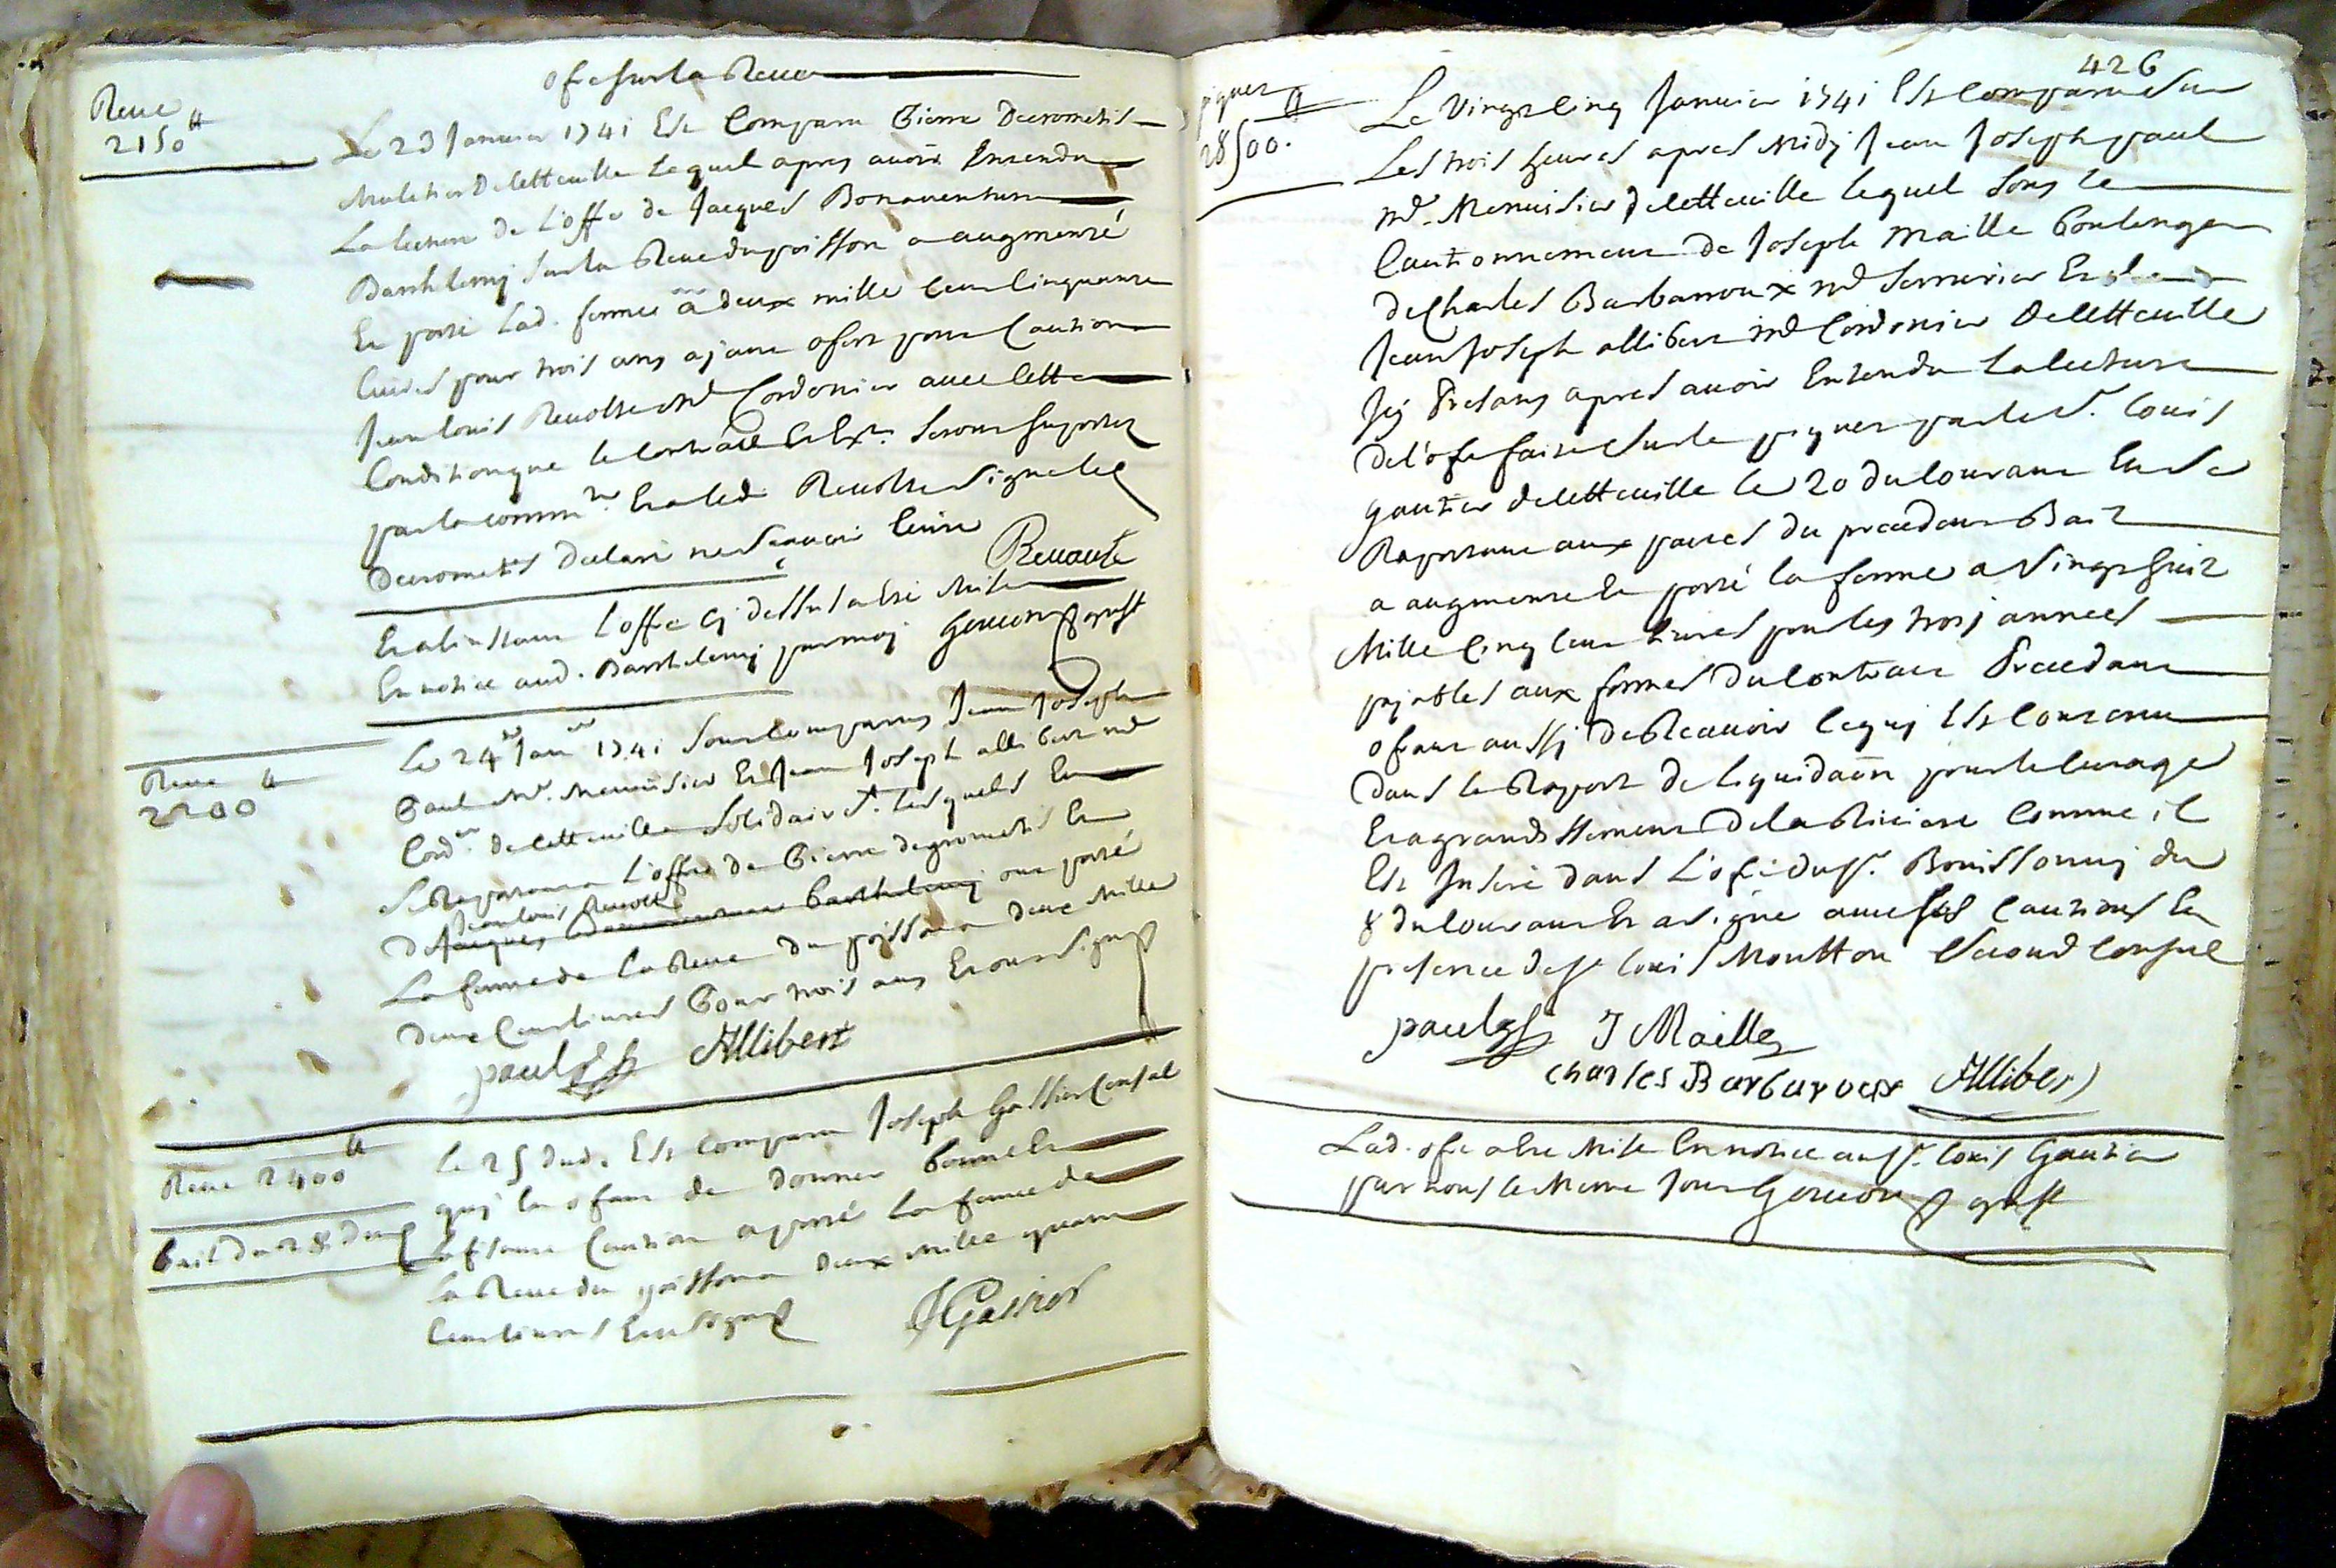 ofe sur la Reve
Reve
2150 ₶
Le 23 Janvier 1741 Est Comparu Pierre Decrometis
Muletier de cette ville Lequel apres avoir Entendu
La lecture de L'offe de Jacques Bonaventure
Barthelemy sur la Reve du poisson a augmenté
Et porté Lad. ferme a deux mille Cent Cinquante
livres pour trois ans ajant ofert pour Caution
Jean Louis Revolte md Cordonier avec cette
Condition que le Contract et Ext. seront suportez
par la commté. Et a led. Revolte signe led
Decrometis declaré ne scavoir Ecrire
Revoute
Et a l'instant L'offe cy dessus a été Mise
En notice aud. Barthelemy par moy Goueon greff
Reve ₶
2200
Le 24 Janer 1741 sont Comparus Jean Joseph
Paul Me. Menuisier Et Jean Joseph allibert md
Cordr. de cette ville Solidairt. lesquels En
Se Raportant a L'offre de Pierre degrometis Et
Jean louis Revolte
de Jacques Bonaventure Barthelemy ont porté
La ferme de la Reve du poisson a deux Mille
deux Cent livres Pour trois ans Et ont signé
paul Allibert
Reve 2400 ₶
bail du 28 dud
Le 25 dud. Est Comparu Joseph Gassier Consal
quj En ofrant de donner bonne Et
sufisante Caution a porté La ferme de
la Reve du poisson a deux Mille quatre
Cent livres Et a signé
J Gassier
426
piquet ₶
28500.
Le Vingt Cinq Janvier 1741 Est Comparu Sur
Les trois heures apres Midy Jean Joseph paul
me. Menuisier de cette ville lequel Sous le
Cautionnement de Joseph Maille boulenger
de Charles Barbarroux md Serrurier Et de
Jean Joseph allibert md Cordonier de cette ville
Jcy Presans apres avoir Entendu La lecture
de l'ofe faite Sur le piquet par le sr. Louis
gautier de cette ville le 20 du Courant En Se
Raportant aux pactes du precedent Bail
a augmenté Et porté la ferme a Vingt huit
Mille Cinq Cent Livres pour les trois années
payables aux formes du Contract Precedant
ofrant aussy de Recevoir ce quj Est Contenu
dans le Raport de liquidaõn pour le curage
Et agrandissement de la Riviere Comme il
Est Inseré dans L'ofe du sr. Bouissonny du
8 du Courant Et a signé avec ses Cautions En
presence de sr Louis Moutton Second Consul
paul J Maille
charles Barbaroux Allibert
Lad. ofe a été Mise En notice au sr. Louis Gautier
par nous le Meme Jour Goueon greff